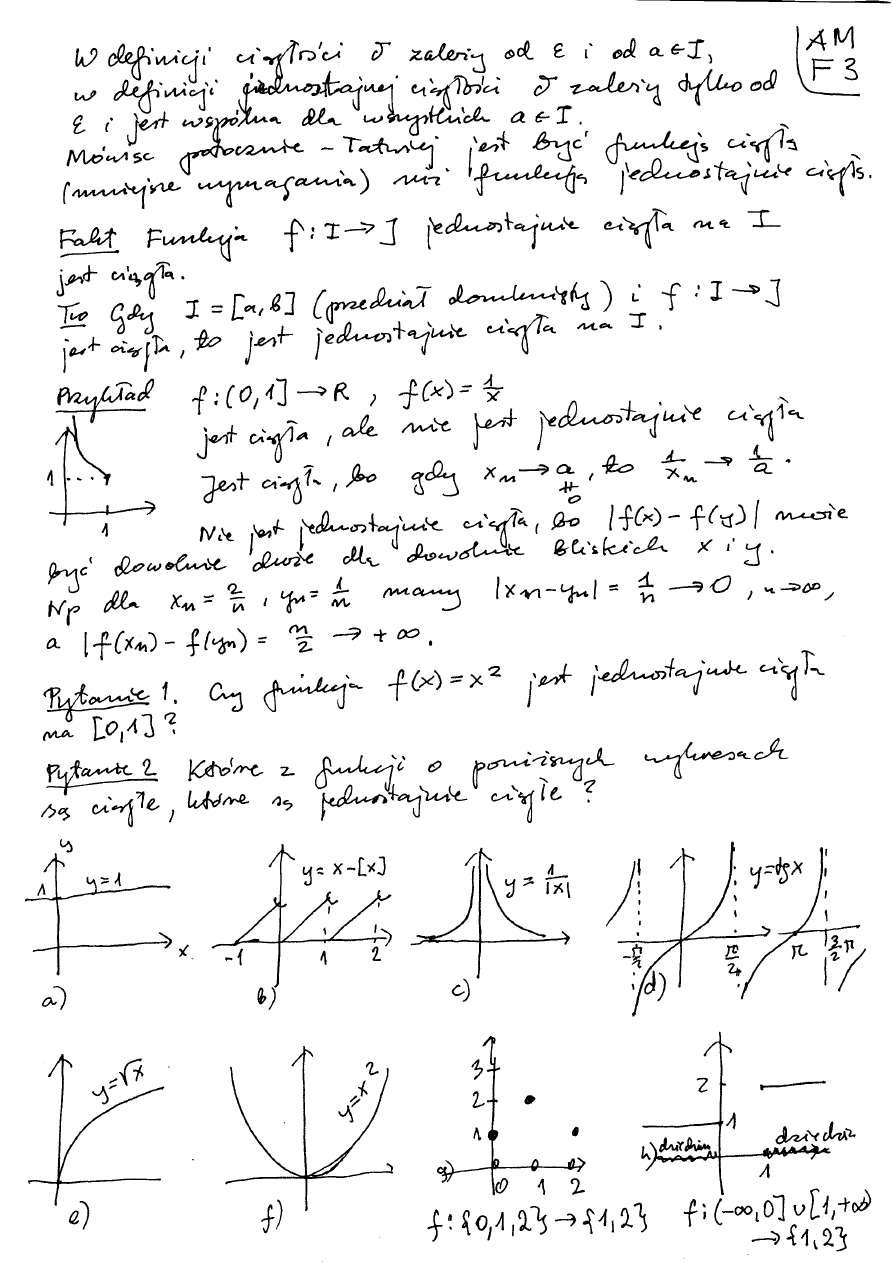 W definicji ciągłości δ zależy od ε i od a ∈ I,
AM
F 3
w definicji jednostajnej ciągłości δ zależy tylko od
ε i jest wspólna dla wszystkich a ∈ I.
Mówiąc potocznie – łatwiej jest być funkcją ciągłą
(mniejsze wymagania) niż funkcją jednostajnie ciągłą.
Fakt Funkcja f : I → J jednostajnie ciągła na I
jest ciągła.
Tw Gdy I = [a, b] (przedział domknięty) i f : I → J
jest ciągła, to jest jednostajnie ciągła na I.
Przykład f : (0, 1] → R , f(x) = 1/x
jest ciągła, ale nie jest jednostajnie ciągła
Jest ciągła, bo gdy xn → a ≠ 0, to 1/xn → 1/a.
1
1
Nie jest jednostajnie ciągła, bo |f(x) – f(y)| może
być dowolnie duże dla dowolnie bliskich x i y.
Np dla xn = 2/n , yn = 1/n mamy |xn – yn| = 1/n → 0 , n → ∞,
a |f(xn) – f(yn) = n/2 → + ∞.
Pytanie 1. Czy funkcja f(x) = x² jest jednostajnie ciągła
na [0,1] ?
Pytanie 2 Które z funkcji o poniższych wykresach
są ciągłe, które są jednostajnie ciągłe ?
y 1 y = 1 x a)
y = x – [x] -1 1 2 b)
y = 1/|x| c)
y = tg x -π/2 π/2 π 3/2 π d)
y = √x e)
y = x² f)
3 2 1 0 1 2 g)
2 1 h) dziedzin dziedzi 1
f : {0,1,2} → {1,2}
f : (-∞,0] ∪ [1,+∞)
→ {1,2}